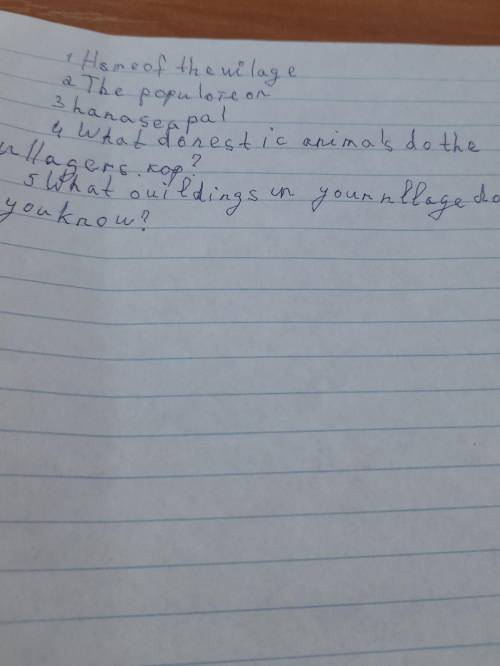 1 Home of the vilage
2 The populoteon
3 hanaseapal
4 What donestic animals do the
vllagers. kop?
5 What ouildings in your vllage do
you know?